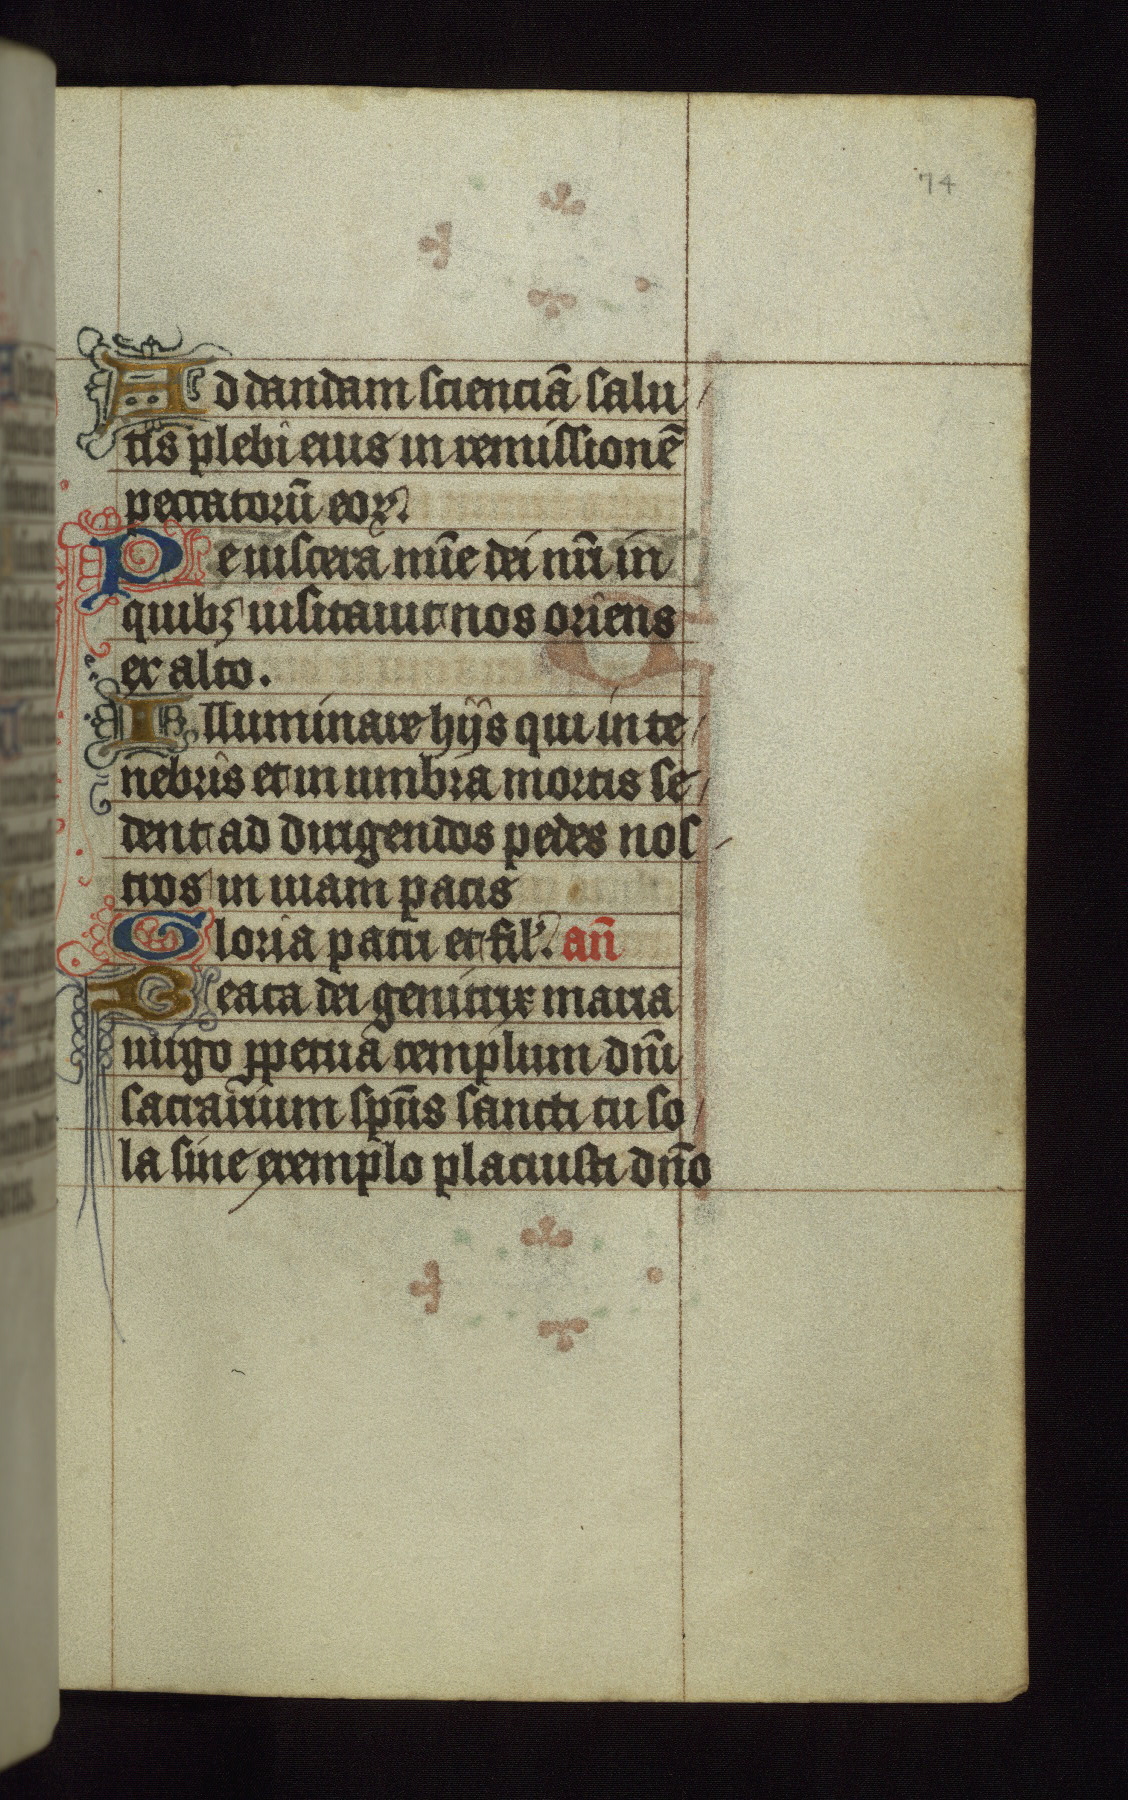 74
Ad dandam scienciā salu
tis plebi eius in remissionē
peccatorū eoꝝ.
Per uiscera mīe dei nrī in
quibꝫ uisitauit nos oriens
ex alto.
Illuminare hijs qui in te
nebris et in umbra mortis se
dent ad dirigendos pedes nos
tros in uiam pacis
Gloria patri et fil'. an̄
Beata dei genitrix maria
uirgo ꝑpetua templum dn̄i
sacrarium spūs sancti tu so
la sine exemplo placuisti dn̄o